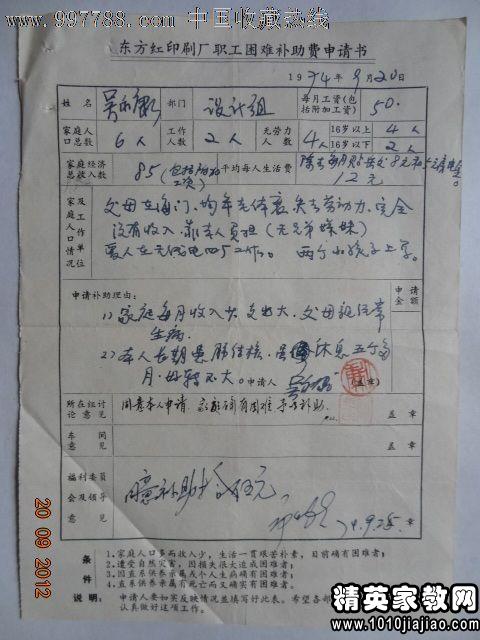 www.997788.com 中国收藏热线
东方红印刷厂职工困难补助费申请书
1974年9月20日
姓名 吴 部门 设计组 每月工资(包括附加工资) 50.
家庭人口总数 6人 工作人数 2人 无劳力人数 4人 16岁以上 4人 16岁以下 2人
家庭经济总收入数 85(包括附加工资) 平均每人生活费 12元
家庭人口情况及工作单位
父母在海门、均年老体衰、失去劳动力、完全
没有收入、靠本人负担(无兄弟妹妹)
爱人在无线电四厂工作。 两个小孩子上学。
申请补助理由: 申请金额
1) 家庭每月收入少、支出大、父母经常
生病.
2) 本人长期患肺结核、休息五个多
月.好转不大。 申请人 (盖章)
所在组讨论意见 同意本人申请 家庭确有困难 予以补助 盖章
车间意见 盖章
福利委员会及领导意见 同意补助 伍元. 74.9.25 章
条件
1、家庭人口多而收入少,生活一贯艰苦朴素,目前确有困难者;
2、遭受自然灾害,因损失很大造成困难者;
3、因直系供养亲属或个人生病确有困难者;
4、因直系供养亲属有死亡而又确实有困难者。
说明: 申请人要如实反映情况并填写好此表。希望各部
认真做好这项工作。
20 09 2012
精英家教网
www.1010jiajiao.com